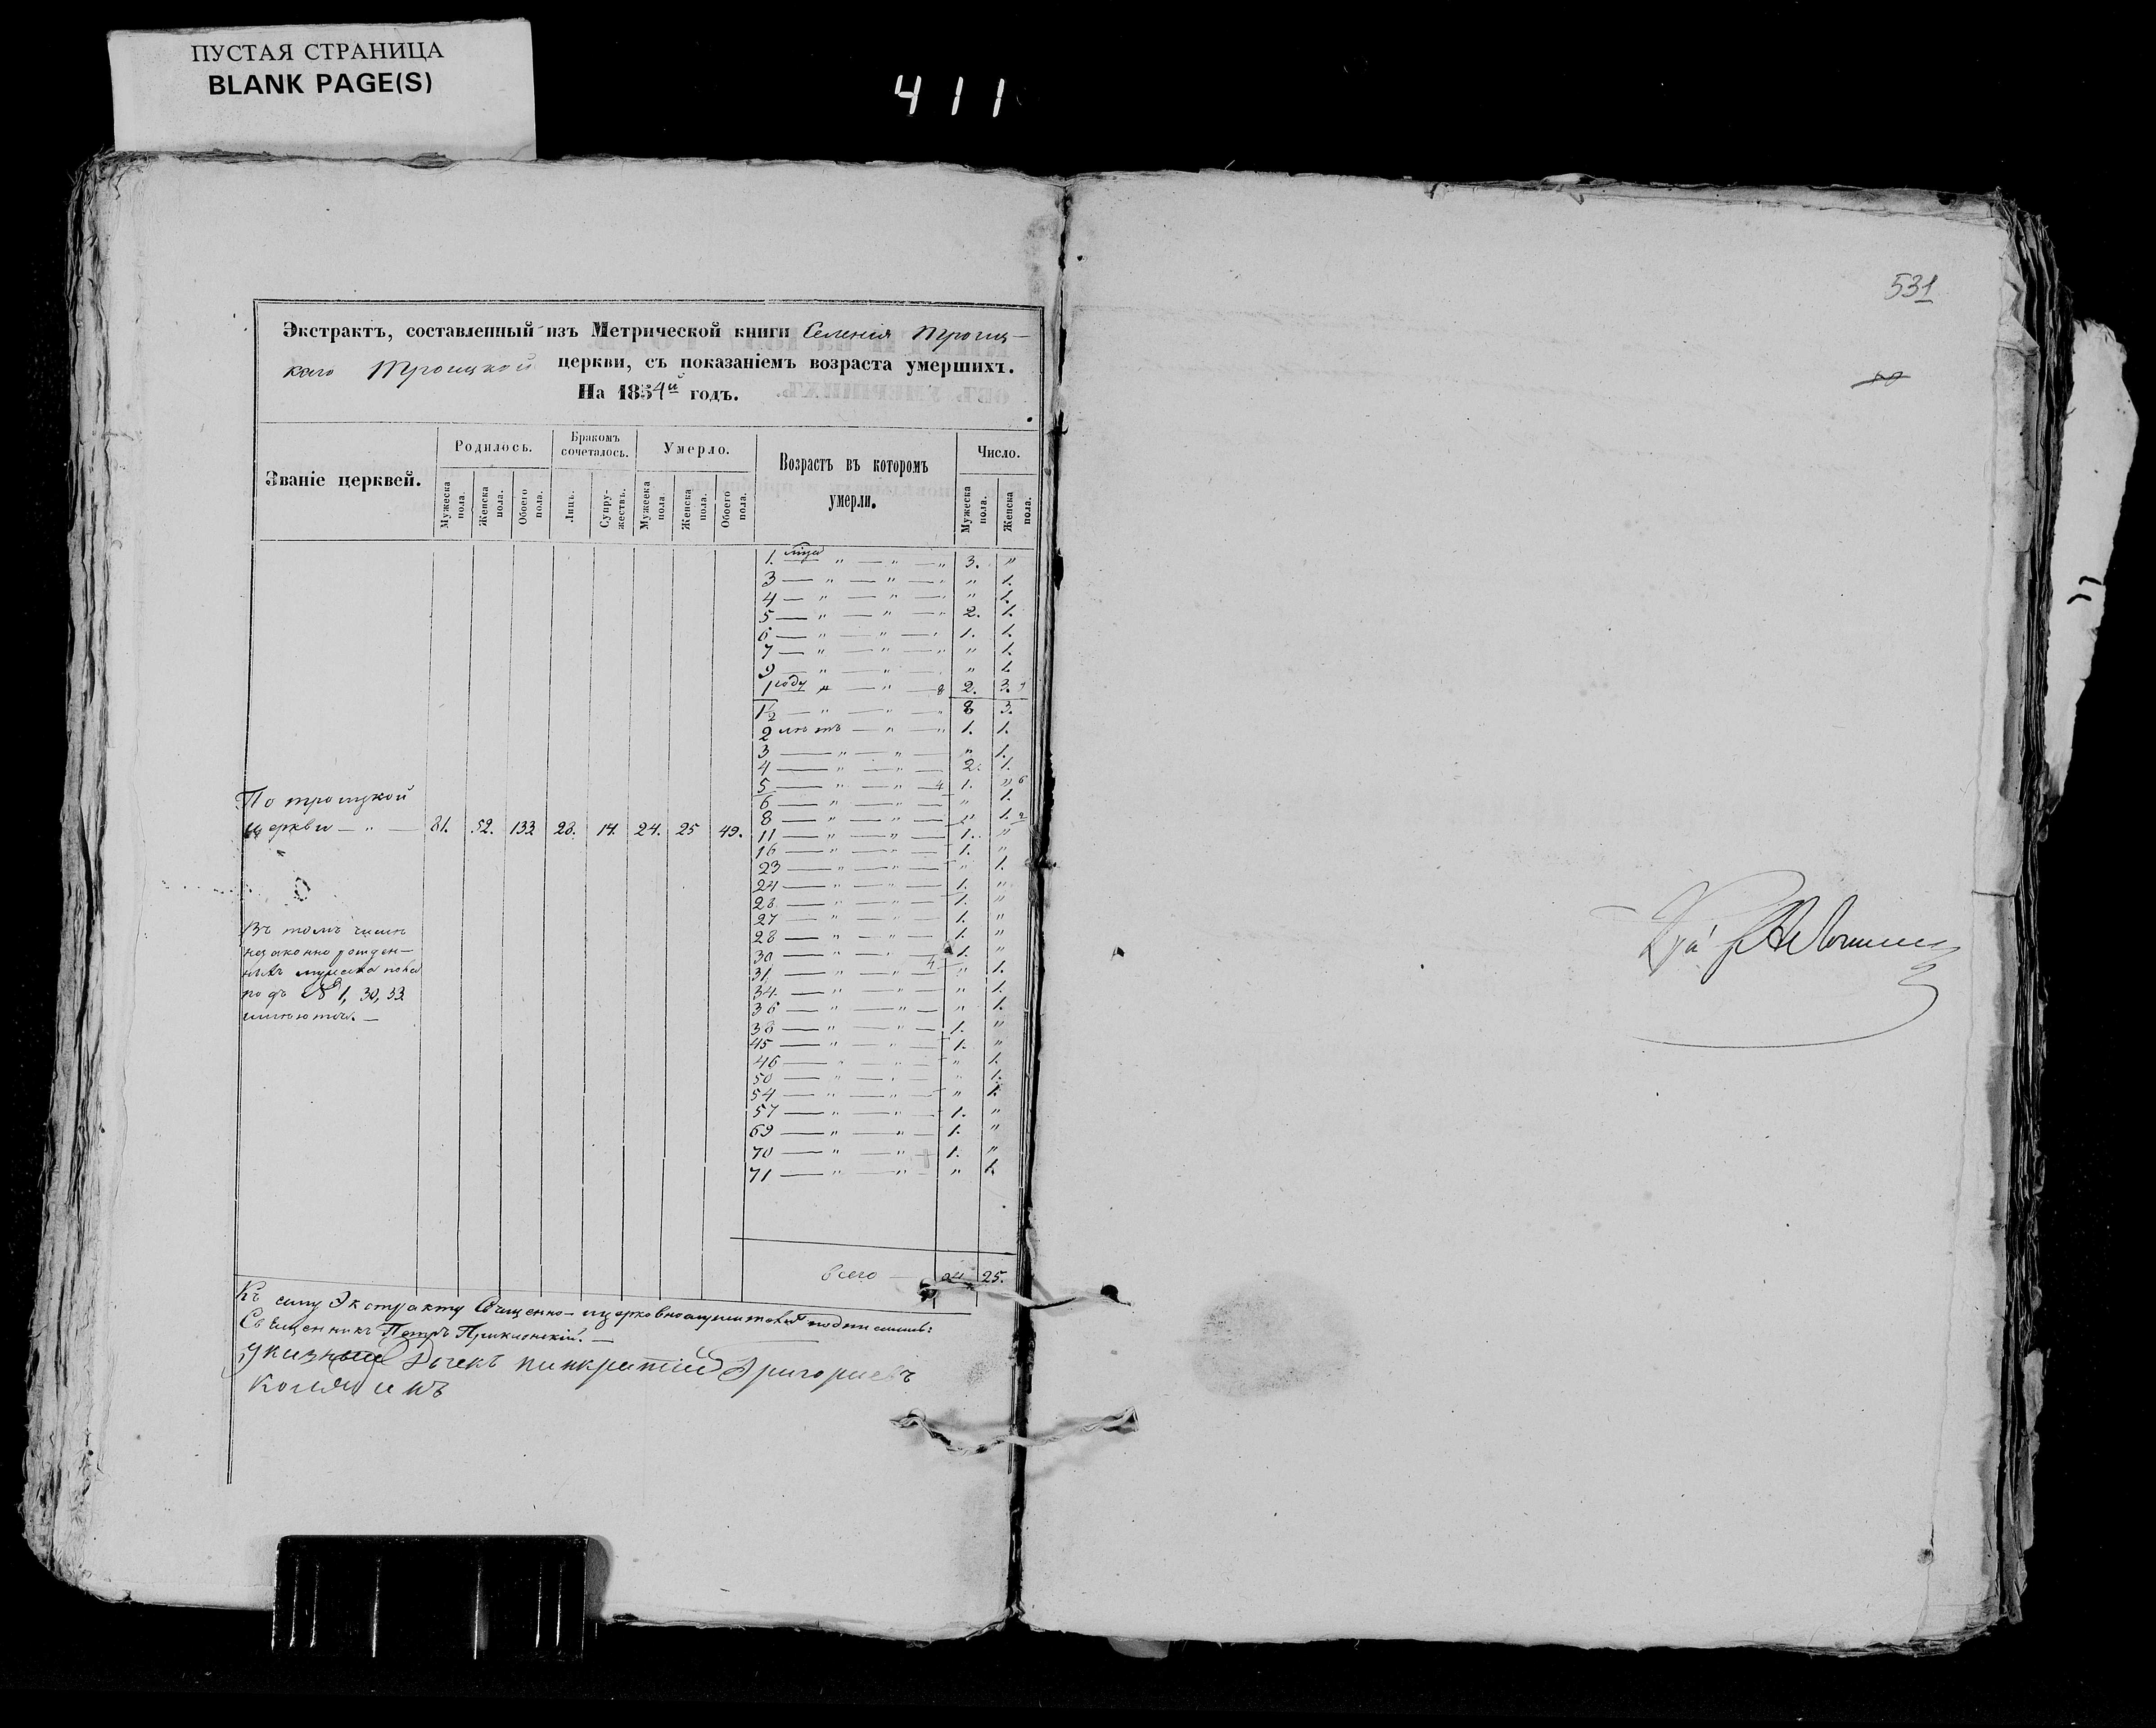 ПУСТАЯ СТРАНИЦА
BLANK PAGE(S)
411
531
Экстрактъ, составленный изъ Метрической книги Селенія Троиц-
каго Троицкой церкви, съ показаніемъ возраста умершихъ.
На 1854й годъ.
Званіе церквей. Родилось. Бракомъ сочеталось. Умерло. Возрастъ въ которомъ умерли. Число.
Мужеска пола. Женска пола. Обоего пола. Лицъ. Супружествъ. Мужеска пола. Женска пола. Обоего пола. Мужеска пола. Женска пола.
1. 3. "
3 — " — " — " " 1.
4 — " — " — " " 1.
5 — " — " — " 2. 1.
6 — " — " — " 1. 1.
7 — " — " — " " 1.
9 — " — " — " 1.
1 году " — " — 8 2. 3. 9
1½ — " — " — " 8 3.
2 лѣтъ — " — " 1. 1.
3 — " — " — " 1.
4 — " — " — 2. 1.
5 — " — " — 4 1. " 6
6 — " — " — " 1.
8 — " — " — " 1. 2
По троицкой
церкви — " — 81. 52. 133 28. 14. 24. 25 49.
11 — " — " — 1. "
16 — " — " — 1. "
23 — " — " — " 1.
24 — " — " — 1. "
26 — " — " — 1. "
27 — " — " — 1. "
28 — " — " — 1. "
30 — " — " — 1. "
31 — " — " — 4 " 1.
34 — " — " — " 1.
36 — " — " — " 1.
38 — " — " — 1. "
45 — " — " — 1. "
46 — " — " — " 1.
50 — " — " — " 1.
54 — " — " — " 1.
57 — " — " — 1. "
69 — " — " — 1. "
70 — " — " 1. "
71 — " — " " 1.
Въ томъ числѣ
незаконно рожден-
ныхъ мужеска пола
подъ № 1, 30, 33
имѣются. —
Всего — 24 25.
Къ сему Экстракту Священно-церковнослужители подписались:
Священникъ Петръ Приклонскій. —
Указный Дьячекъ Панкратій Григориевъ